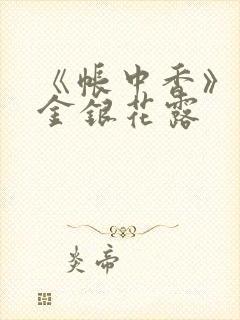 《帐中香》
金银花露
炎帝